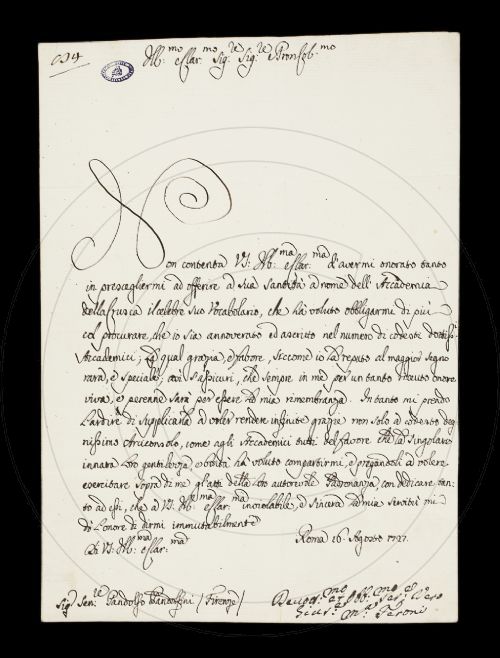 Ill.mo ed Illar.mo Sig.re Sig.re Pron Col.mo
Non contenta VS: Ill.ma ed Illar.ma d'avermi onorato tanto
in prescegliermi ad offerire a Sua Santità a nome dell'Accademia
della Crusca il celebre suo Vocabolario, che ha voluto obbligarmi di più
col procurare, che io sia annoverato ed ascritto nel numero di codesti dottiss:
Accademici; la qual grazia, e favore, siccome io la reputo al maggior segno
rara, e speciale, così s'assicuri, che sempre in me per un tanto ricevuto onore
viva, e perenne sarà per essere la mia rimembranza. In tanto mi prendo
l'ardire di supplicarla a voler rendere infinite grazie non solo a codesto deg
nissimo Arciconsolo, come agli Accademici tutti del favore che la singolare
innata loro gentilezza e bontà ha voluto compartirmi, e pregandoli a volere
esercitare sopra di me gl'atti della loro autorevole Padronanza, con dedicare tan:
to ad essi, che a VS: Ill.ma inviolabile, e sincera la mia servitù mi
dò l'onore di dirmi immutabilmente
Di VS: Ill.ma
Roma 16. Agosto 1727.
Sig.re Sen.re Pandolfo Pandolfini / Firenze /
Devot.mo et Obb.mo Ser.re Vero